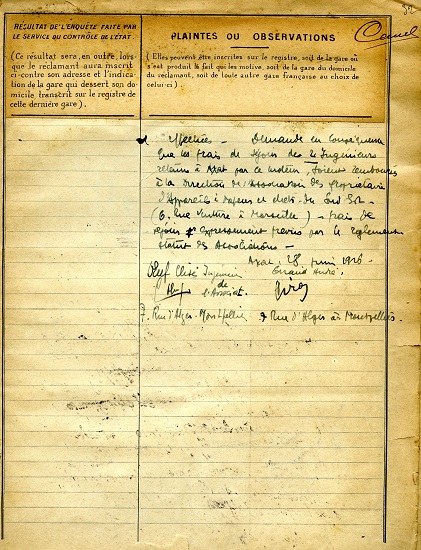 RÉSULTAT DE L'ENQUÊTE FAITE PAR
LE SERVICE DU CONTRÔLE DE L'ÉTAT.
(Ce résultat sera, en outre, lors
que le réclamant aura inscrit
ci-contre son adresse et l'indica-
tion de la gare qui dessert son do-
micile, transcrit sur le registre de
cette dernière gare).
PLAINTES OU OBSERVATIONS
(Elles peuvent être inscrites sur le registre, soit de la gare où
s'est produit le fait qui les motive, soit de la gare du domicile
du réclamant, soit de toute autre gare française au choix de
celui-ci.)
effectuée - Demande en conséquence
que les frais de séjour des 2 Ingénieurs
retenus à Axat par ce moteur, soient remboursés
à la Direction de l'Association des Propriétaires
d'Appareils à Vapeur et élect. du Sud Est
(6, Rue Venture à Marseille) - frais de
séjour expressément prévus par le règlement
statut des Associations -
Axat 28 juin 1926
Ingénieur André
de
l'Associat.
7, Rue d'Alger - Montpellier
7 Rue d'Alger à Montpellier.